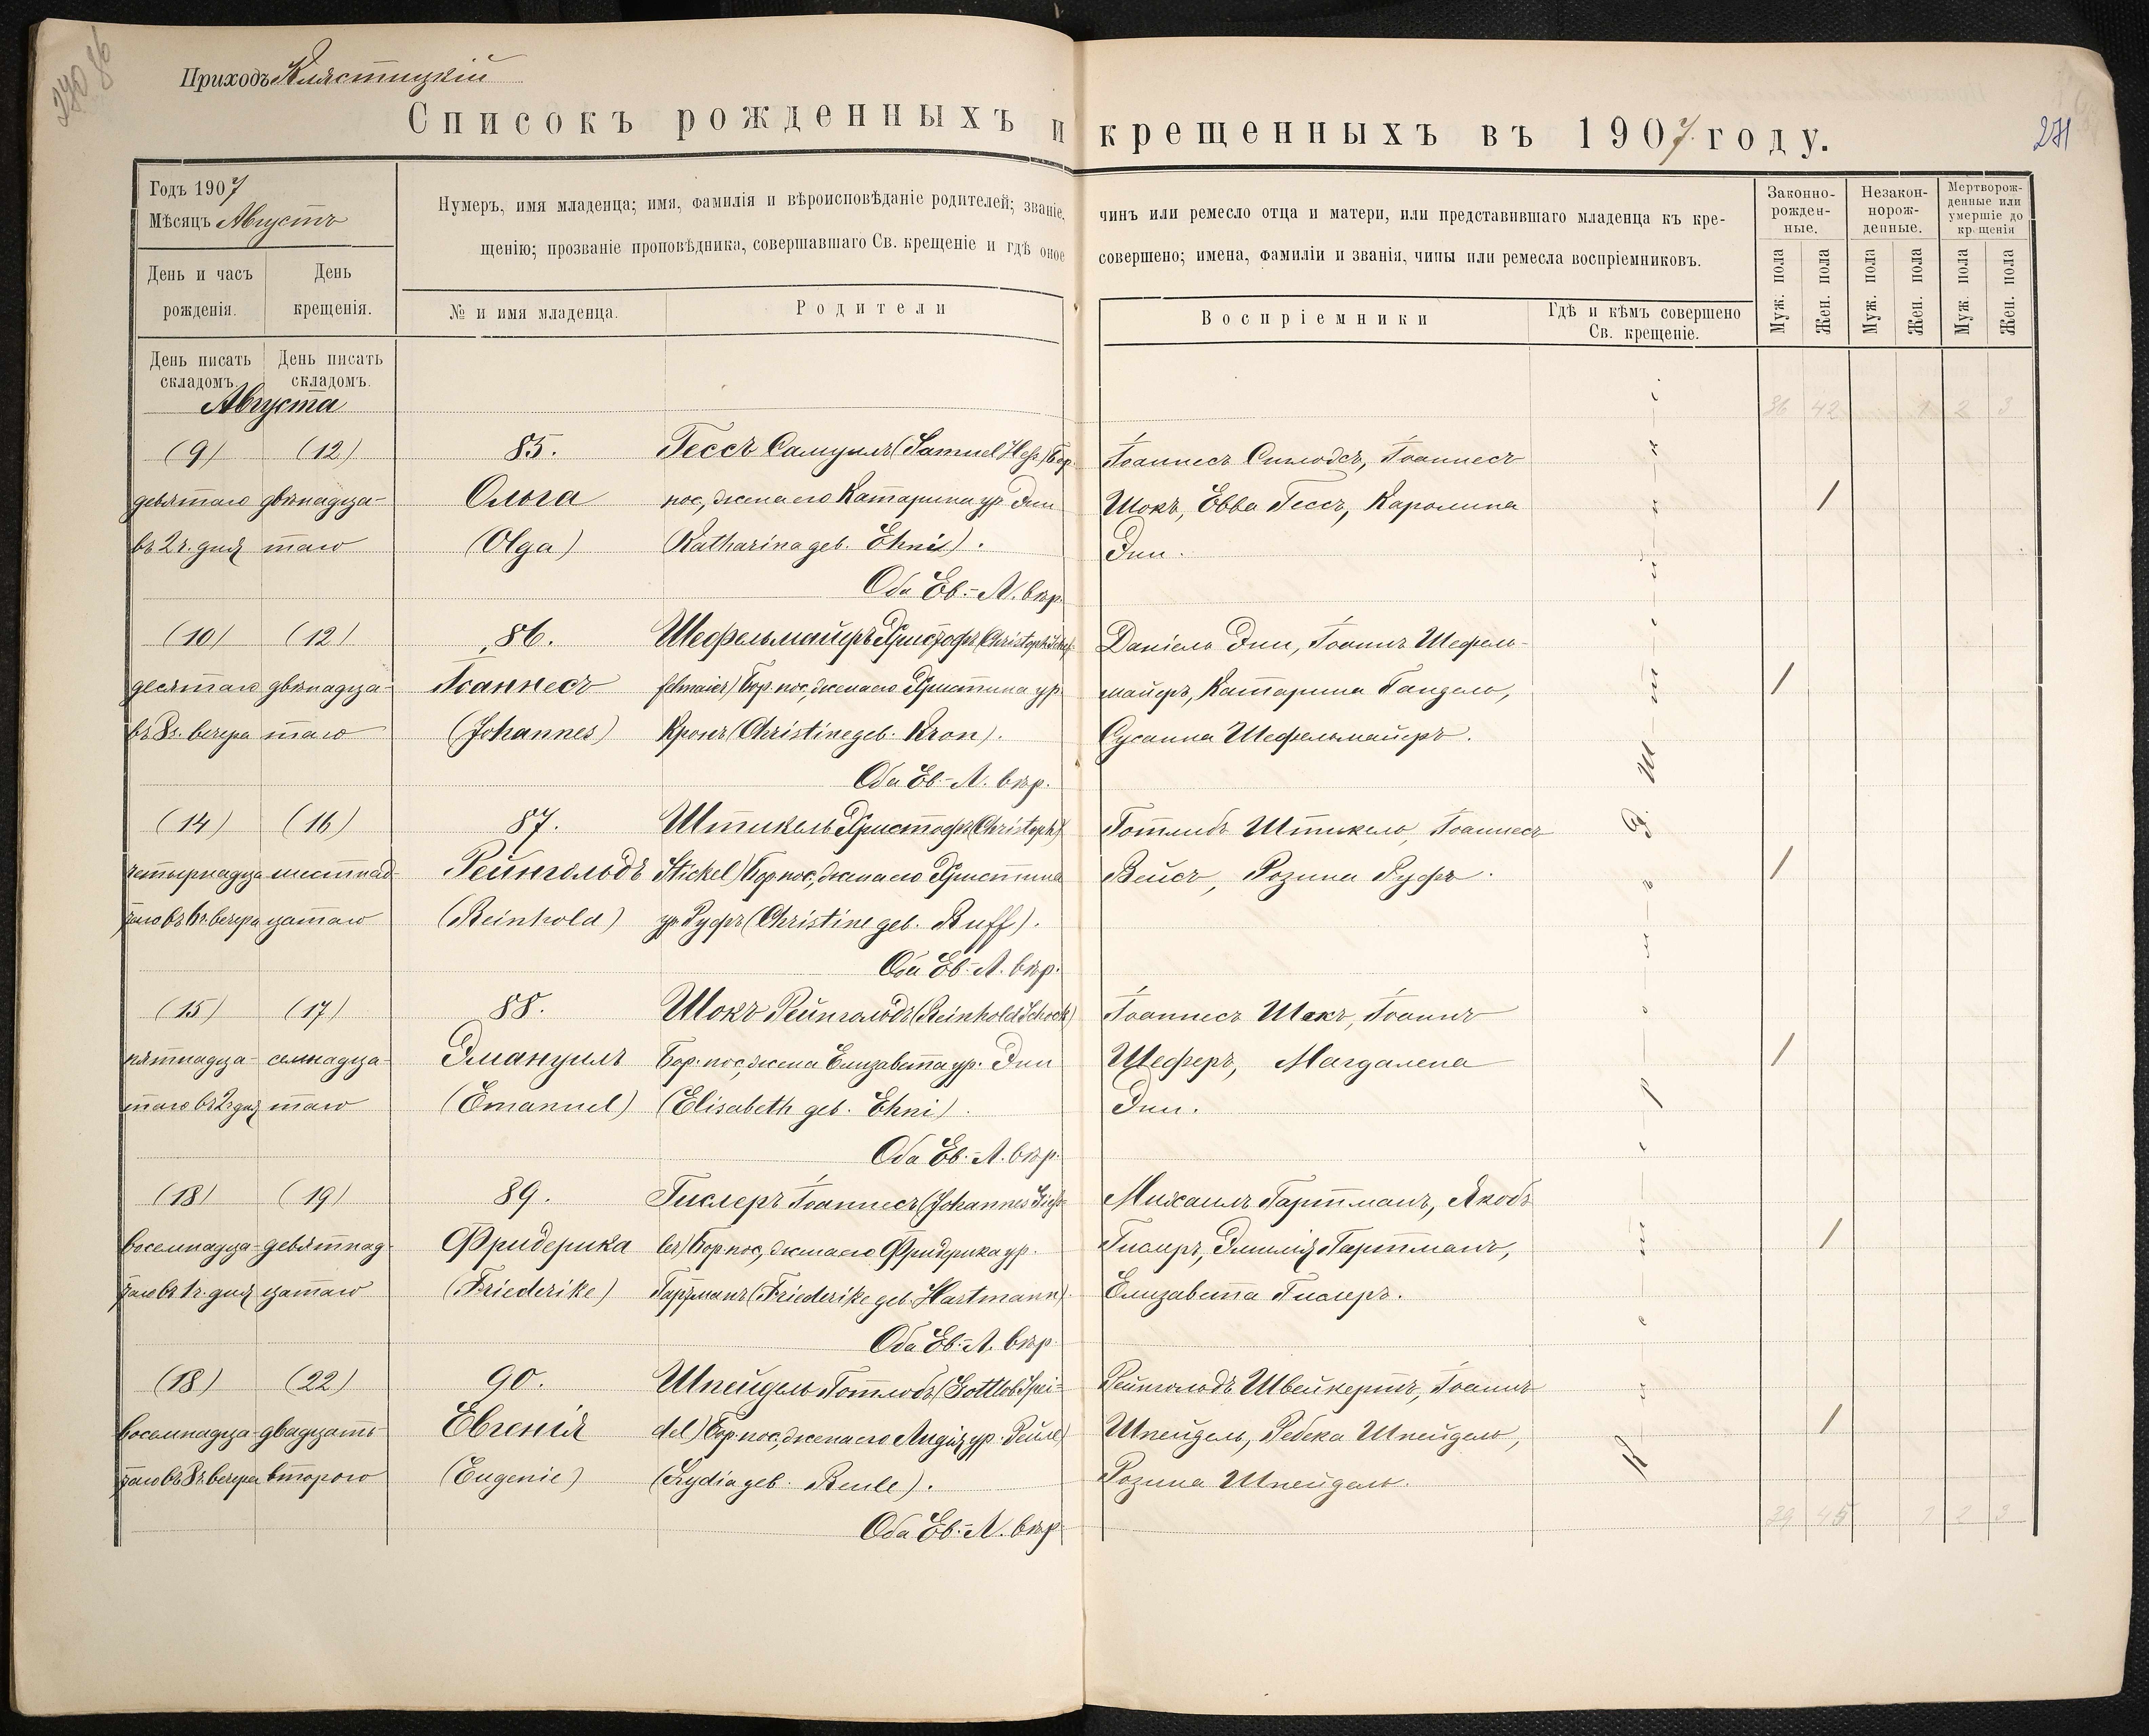 270 86
Приходъ Клястицкій
Списокъ рожденныхъ и крещенныхъ въ 1907 году.
271
Годъ 1907
Мѣсяцъ Августъ
Нумеръ, имя младенца; имя, фамилія и вѣроисповѣданіе родителей; званіе, чинъ или ремесло отца и матери, или представившаго младенца къ кре-
щенію; прозваніе проповѣдника, совершавшаго Св. крещеніе и гдѣ оное совершено; имена, фамиліи и званія, чины или ремесла воспріемниковъ.
Законно-
рожден-
ные.
Незакон-
норож-
денные.
Мертворож-
денные или
умершіе до
крещенія
День и часъ
рожденія.
День
крещенія.
№ и имя младенца.
Родители
Воспріемники
Гдѣ и кѣмъ совершено
Св. крещеніе.
Муж. пола
Жен. пола
Муж. пола
Жен. пола
Муж. пола
Жен. пола
День писать
складомъ.
День писать
складомъ.
Августа
36 42 1 2 3
(9) (12) 85. Гессъ Самуилъ (Samuel Heß) Бор. Іоаннесъ Іоаннесъ
девятаго двѣнадца- Ольга пос., жена его Катарина ур. Эни Шокъ, Ева Гессъ, Каролина /
въ 2 ч. дня таго (Olga) (Katharina geb. Ehni). Эни.
Оба Ев.-Л. вѣр.
(10) (12) 86. Шефельмайеръ Христофъ (Christoph Schef- Даніель Эни, Іоаннъ Шефель-
десятаго двѣнадца- Іоаннесъ felmaier) Бор. пос., жена его Христина ур. майеръ, Катарина Гандель, /
въ 8 ч. вечера таго (Johannes) Кронъ (Christine geb. Kron). Сусанна Шефельмайеръ.
Оба Ев.-Л. вѣр.
(14) (16) 87. Штикель Христофъ (Christoph Готлибъ Штикель, Іоаннесъ
четырнадца шестнад- Рейнгольдъ Stickel) Бор. пос., жена его Христина Вейсъ, Розина Руфъ. /
таго въ 6 ч. вечера цатаго (Reinhold) ур. Руфъ (Christine geb. Ruff).
Оба Ев.-Л. вѣр.
(15) (17) 88. Шокъ Рейнгольдъ (Reinhold Schock) Іоаннесъ Шокъ, Іоаннъ
пятнадца- семнадца- Эмануилъ Бор. пос., жена Елизавета ур. Эни Шеферъ, Магдалена /
таго въ 2 ч. дня таго (Emanuel) (Elisabeth geb. Ehni). Эни.
Оба Ев.-Л. вѣр.
(18) (19) 89. Гислеръ Іоаннесъ (Johannes Gieß- Михаилъ Гартманъ, Якобъ
восемнадца- девятнад- Фридерика ler) Бор. пос., жена его Фридерика ур. Гислеръ, Эмилія Гартманъ, /
таго въ 1 ч. дня цатаго (Friederike) Гартманъ (Friederike geb. Hartmann). Елизавета Гислеръ.
Оба Ев.-Л. вѣр.
(18) (22) 90. Шпейдель Готлобъ (Gottlob Spei- Рейнгольдъ Швейкертъ, Іоаннъ
восемнадца- двадцать- Евгенія del) Бор. пос., жена его Лидія ур. Шпейдель, Ребека Шпейдель, /
таго въ 8 ч. вечера второго (Eugenie) (Lydia geb. Beule). Розина Шпейдель.
Оба Ев.-Л. вѣр.
39 45 1 2 3